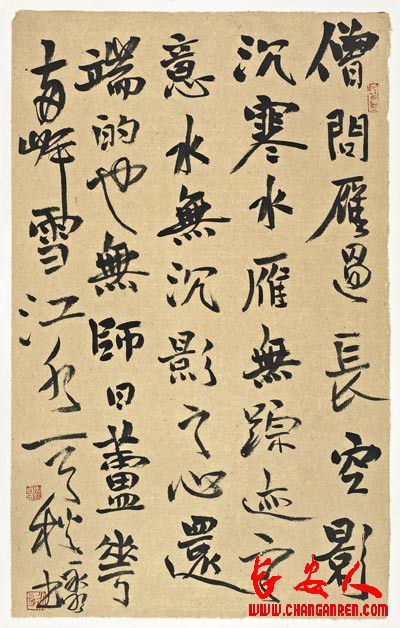 僧問雁過長空影
沉寒水雁無踪迹之
意水無沉影之心還
端的也無師曰蘆花
兩岸雪江水一天秋
长安人
WWW.CHANGANREN.COM